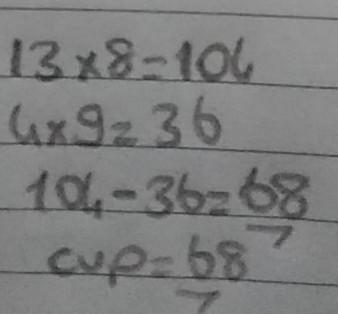 13×8=104
4×9=36
104-36=68
cvp=68